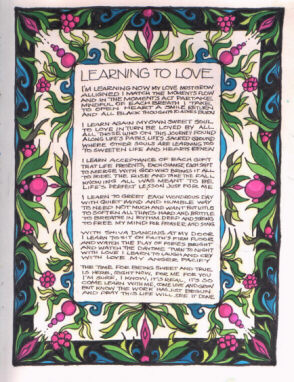 LEARNING TO LOVE
I'M LEARNING NOW MY LOVE MUST GROW
ALLIGNED I MATCH THE MOMENT'S FLOW
AND IN THE MOMENT'S ACT PARTAKE
MINDFUL OF EACH BREATH I TAKE
TO OPEN HEART A SMILE RETURN
AND ALL BLACK THOUGHTS TO ASHES BURN
I LEARN AGAIN MY OWN SWEET SOUL
TO LOVE IN TURN BE LOVED BY ALL
ALL THOSE WHO ON THIS JOURNEY FOUND
ALONG LIFE'S PATHS LIFE'S SACRED GROUND
WHERE OTHER SOULS ARE LEARNING TOO
TO SWEETEN LIFE AND HEARTS RENEW
I LEARN ACCEPTANCE OF EACH GIFT
THAT LIFE PRESENTS, EACH CHANGE, EACH SHIFT
TO MERGE WITH GOD WHO BRINGS IT ALL
TO RIDE THE RISE AND THE FALL
KNOWING ALL WAS MEANT TO BE
LIFE'S PERFECT LESSON JUST FOR ME
I LEARN TO GREET EACH WONDROUS DAY
WITH QUIET MIND AND HUMBLE WAY
TO NEED NOT MUCH AND WANT BUT LITTLE
TO SOFTEN ALL THINGS HARD AND BRITTLE
TO BREATHE IN RHYTHM DEEP AND STRONG
TO FREE MY MIND FOR PRAYER AND SONG
WITH SHIVA DANCING AT MY DOOR
I LEARN TO SIT ON FAITH'S FIRM FLOOR
AND WATCH THE PLAY OF FORCES BRIGHT
AND WATCH THE DAYTIME TURN TO NIGHT
WITH LOVE I LEARN TO LAUGH AND CRY
WITH LOVE MY ANGER PACIFY
THE TIME FOR BEING SWEET AND TRUE
IS HERE, RIGHT NOW, FOR ME FOR YOU
I'M SURE, I KNOW, IT'S REAL, IT'S SO
COME LEARN WITH ME, COME LIVE AND GROW
BUT KNOW THE WORK HAS JUST BEGUN
AND PRAY THIS LIFE WILL SEE IT DONE